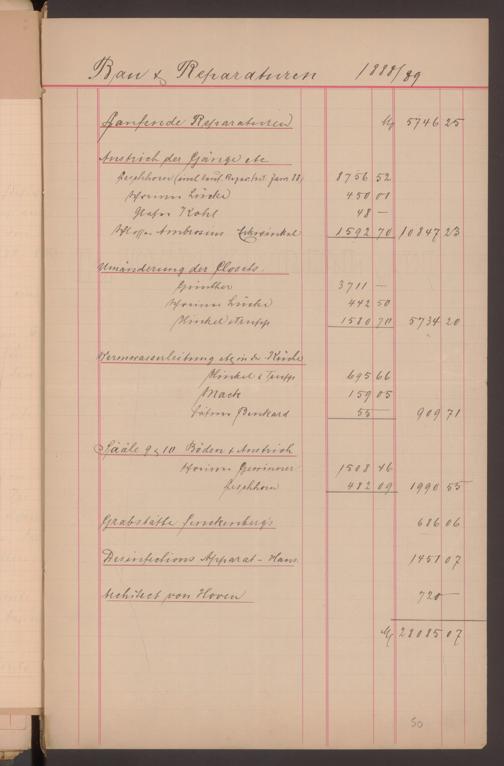 Bau & Reparaturen 1888/89
Laufende Reparaturen M 5746 25
Anstrich der Gänge etc
Leschhorn (incl lauf. Repar. bis Jan. 88) 8756 52
Lücke 450 01
Glaser Kohl 48 —
Schlosser Ambrosius 1592 70 10847 23
Umänderung der Closets.
Günther 3711 —
Lücke 442 50
Hinkel & 1580 70 5734 20
Warmwasserleitung etc in der Küche
Hinkel & 695 66
Mack 159 05
55 — 909 71
Sääle 9 & 10 Böden & Anstrich
1508 46
Leschhorn 482 09 1990 55
Grabstätte Senckenberg's 686 06
Desinfections Apparat - Haus 1451 07
Architect von Hoven 720 —
M 28085 07
50